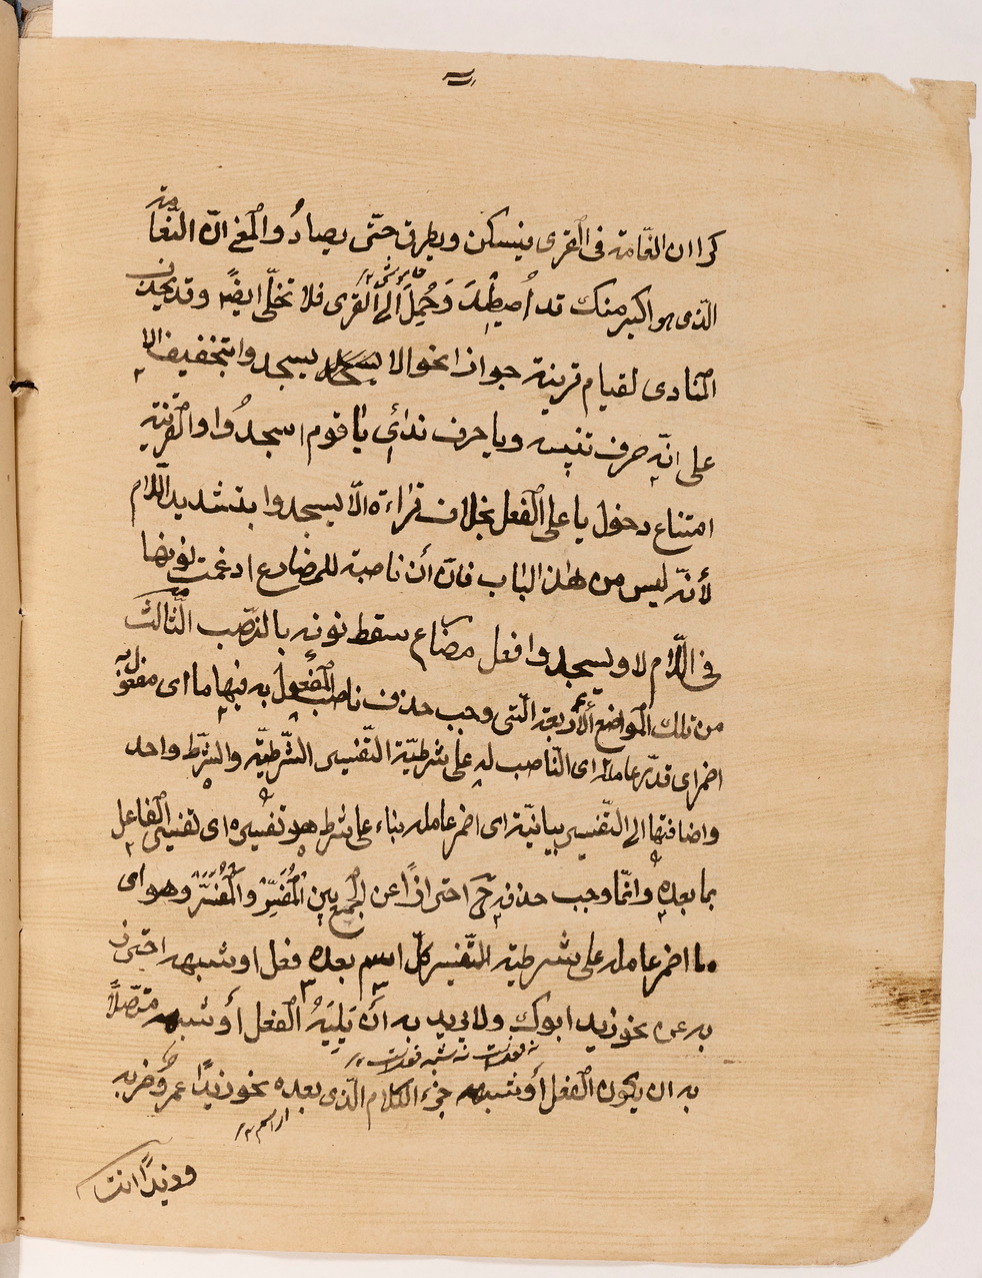 كرا ان النعامة فى القرى فيسكن ويطرق حتّى يصادُ والمعنى انّ النّعامة
الّذى هو اكبر منك قد اُصطِيدَ وَحُمِلَ اِلى القرى فلا تخلّى ايضًا وقد يحذف
المنادى لقيام قرينة جوازا نحو الا يسجد يسجدوا بتخفيف الا
على انّه حرف تنبيه ويا حرف ندائى يا قوم اسجدُوا والقرينة
امتناع دخول يا على الفعل بخلاف قراءة الّا يسجدوا بتشديد اللّام
لأنّه ليس من هذا الباب فانّ أن ناصبة للمضارع ادغمت نونها
فى اللّام لا ويسجدوا فعل مضاع سقط نونه بالنّصب الثّالث
من تلك المواضع الأربعة الّتى وجب حذف ناصب المفعول به فيها ما اى مفعول به
اضمر اى قدّر عامله اى النّاصب له على شرطيّة التّفسير الشّرطيّة والشّرط واحد
واضافتها الى التّفسير بيانيّة اى اضمر عامله بناء على شرط هو تفسيره اى تفسير الفاعل
بما بعده وانّما وجب حذفه ح احترازًا عن الجمع بين المُفَسِّر والمُفَسَّر وهو اى
ما اضمر عامله على شرطية التّفسير كلّ اسم بعده فعل او شبهه احترز
به عن نحو زيد ابوك ولا يريد به أن يَلِيَهُ الفعل أو شبهه متّصلًا
به ان يكون الفعل أو شبهه جزء الكلام الّذى بعده نحو زيدًا عمرو ضربه
وزيدًا انت